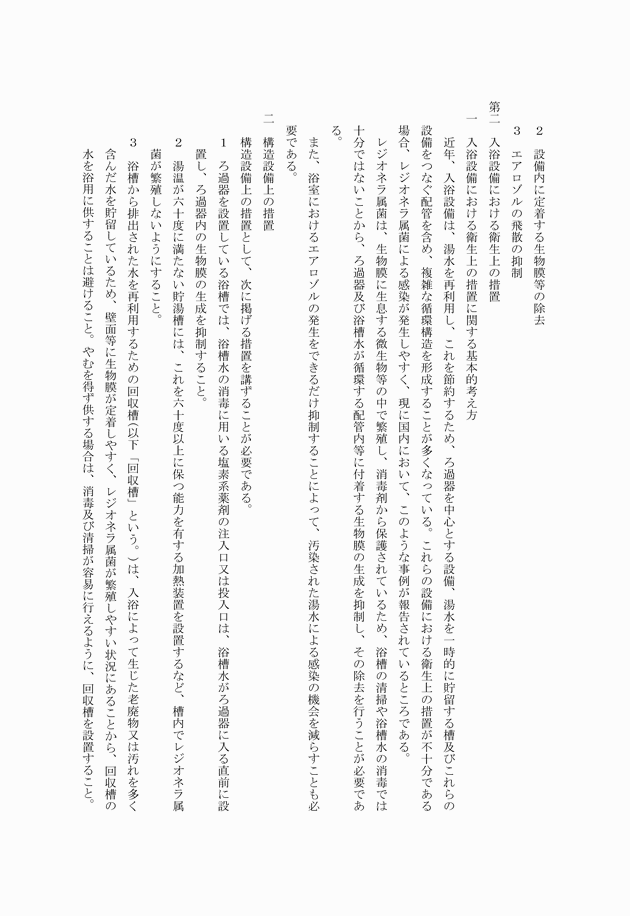 2 設備内に定着する生物膜等の除去
3 エアロゾルの飛散の抑制
第二 入浴設備における衛生上の措置
一 入浴設備における衛生上の措置に関する基本的考え方
近年、入浴設備は、湯水を再利用し、これを節約するため、ろ過器を中心とする設備、湯水を一時的に貯留する槽及びこれらの
設備をつなぐ配管を含め、複雑な循環構造を形成することが多くなっている。これらの設備における衛生上の措置が不十分である
場合、レジオネラ属菌による感染が発生しやすく、現に国内において、このような事例が報告されているところである。
レジオネラ属菌は、生物膜に生息する微生物等の中で繁殖し、消毒剤から保護されているため、浴槽の清掃や浴槽水の消毒では
十分ではないことから、ろ過器及び浴槽水が循環する配管内等に付着する生物膜の生成を抑制し、その除去を行うことが必要であ
る。
また、浴室におけるエアロゾルの発生をできるだけ抑制することによって、汚染された湯水による感染の機会を減らすことも必
要である。
二 構造設備上の措置
構造設備上の措置として、次に掲げる措置を講ずることが必要である。
1 ろ過器を設置している浴槽では、浴槽水の消毒に用いる塩素系薬剤の注入口又は投入口は、浴槽水がろ過器に入る直前に設
置し、ろ過器内の生物膜の生成を抑制すること。
2 湯温が六十度に満たない貯湯槽には、これを六十度以上に保つ能力を有する加熱装置を設置するなど、槽内でレジオネラ属
菌が繁殖しないようにすること。
3 浴槽から排出された水を再利用するための回収槽(以下「回収槽」という。)は、入浴によって生じた老廃物又は汚れを多く
含んだ水を貯留しているため、壁面等に生物膜が定着しやすく、レジオネラ属菌が繁殖しやすい状況にあることから、回収槽の
水を浴用に供することは避けること。やむを得ず供する場合は、消毒及び清掃が容易に行えるように、回収槽を設置すること。